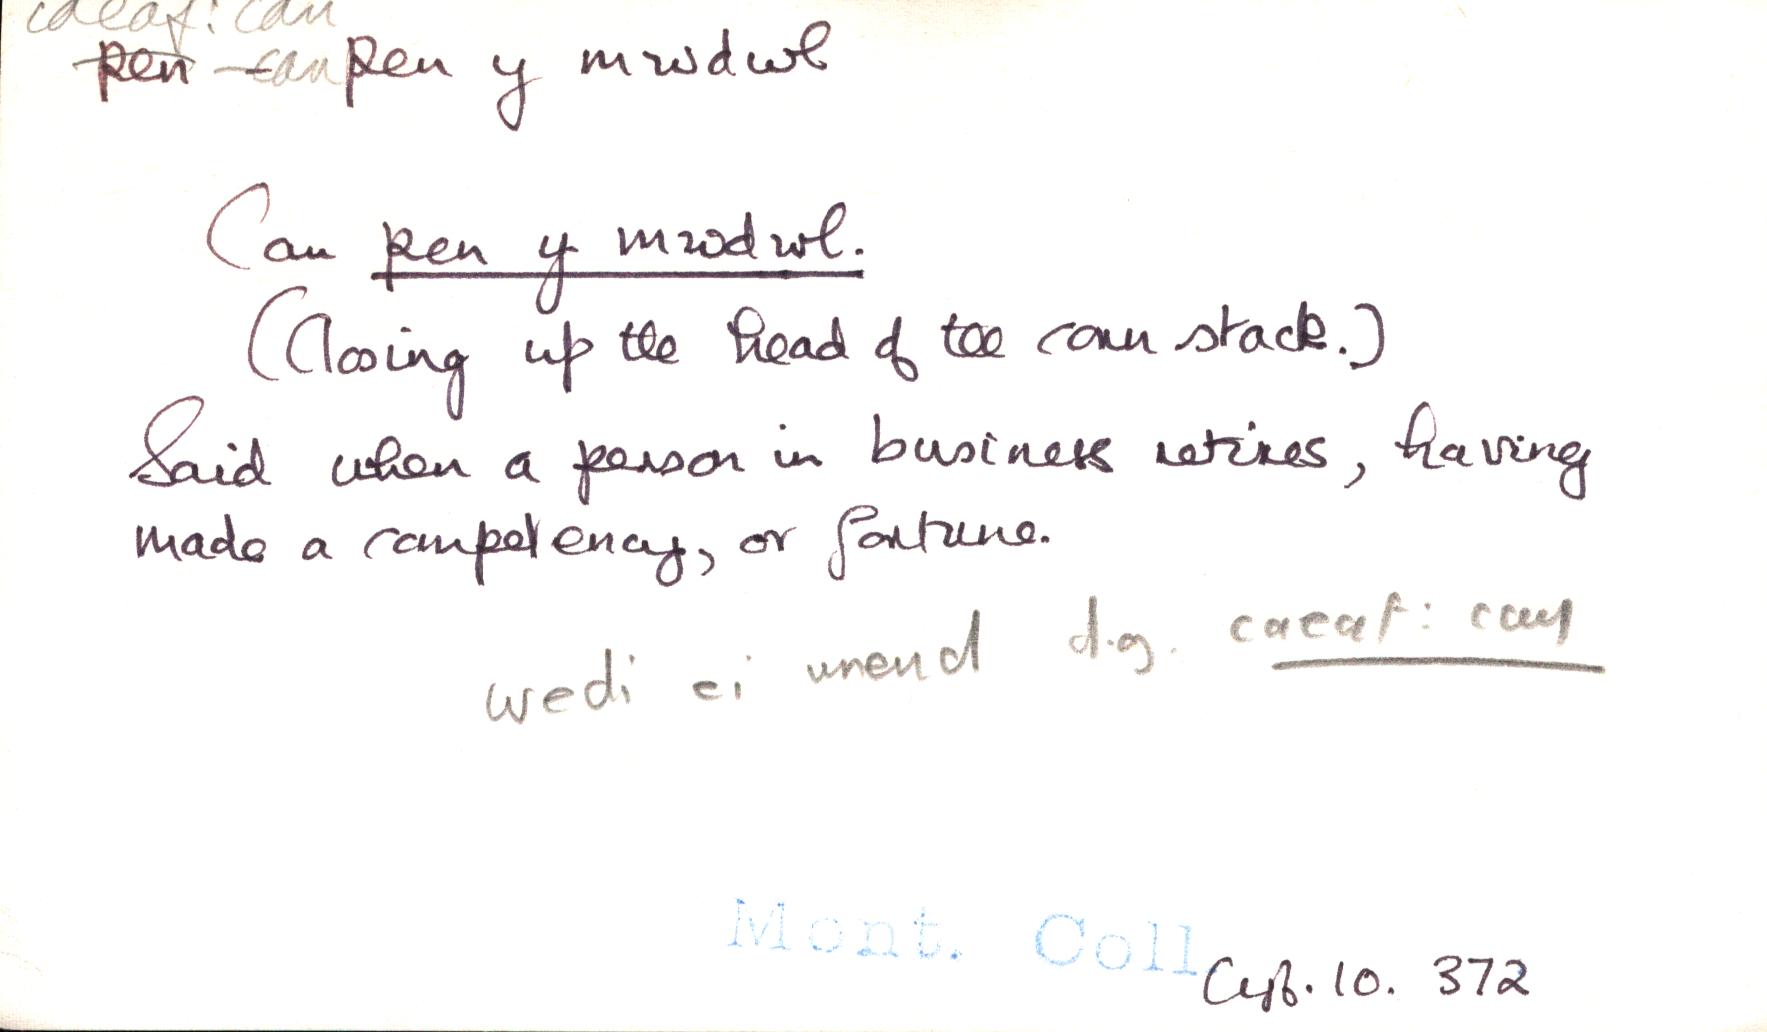 caeaf: can
pen can pen y mwdwl
Cau pen y mwdwl.
(Closing up the head of the corn stack.)
Said when a person in business retires, having
made a competency, or fortune.
wedi ei wneud d.g. caeaf: cau
Mont. Coll.
Cyf. 10. 372